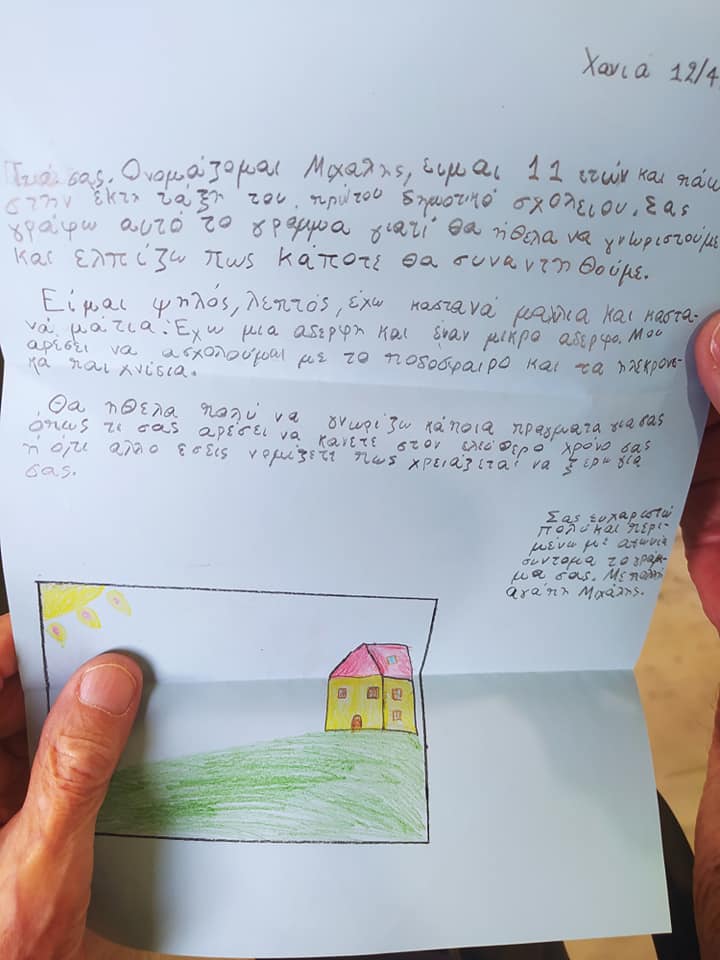 Χανιά 12/4
Γειά σας. Ονομάζομαι Μιχάλης, είμαι 11 ετών και πάω
στην έκτη τάξη του πρώτου δημοτικό σχολείου. Σας
γράφω αυτό το γράμμα γιατί θα ήθελα να γνωριστούμε
και ελπίζω πως κάποτε θα συναντηθούμε.
Είμαι ψηλός, λεπτός, έχω καστανά μαλλια και καστα-
νά μάτια. Έχω μια αδερφη και έναν μικρο αδερφο. Μου
αρέσει να ασχολούμαι με το ποδοσφαιρο και τα ηλεκρονι-
κα παιχνίσια.
Θα ήθελα πολύ να γνωρίζω κάποια πραγματα για σας
όπως τι σας αρέσει να κάνετε στον ελεύθερο χρόνο σας
ή ό,τι αλλο εσείς νομίζετε πως χρειάζεται να ξερω για
σας.
Σας ευχαριστώ
πολύ και περι-
μένω με αγωνία
συντομα το γράμ-
μα σας. Με πολλή
αγάπη Μιχάλης.